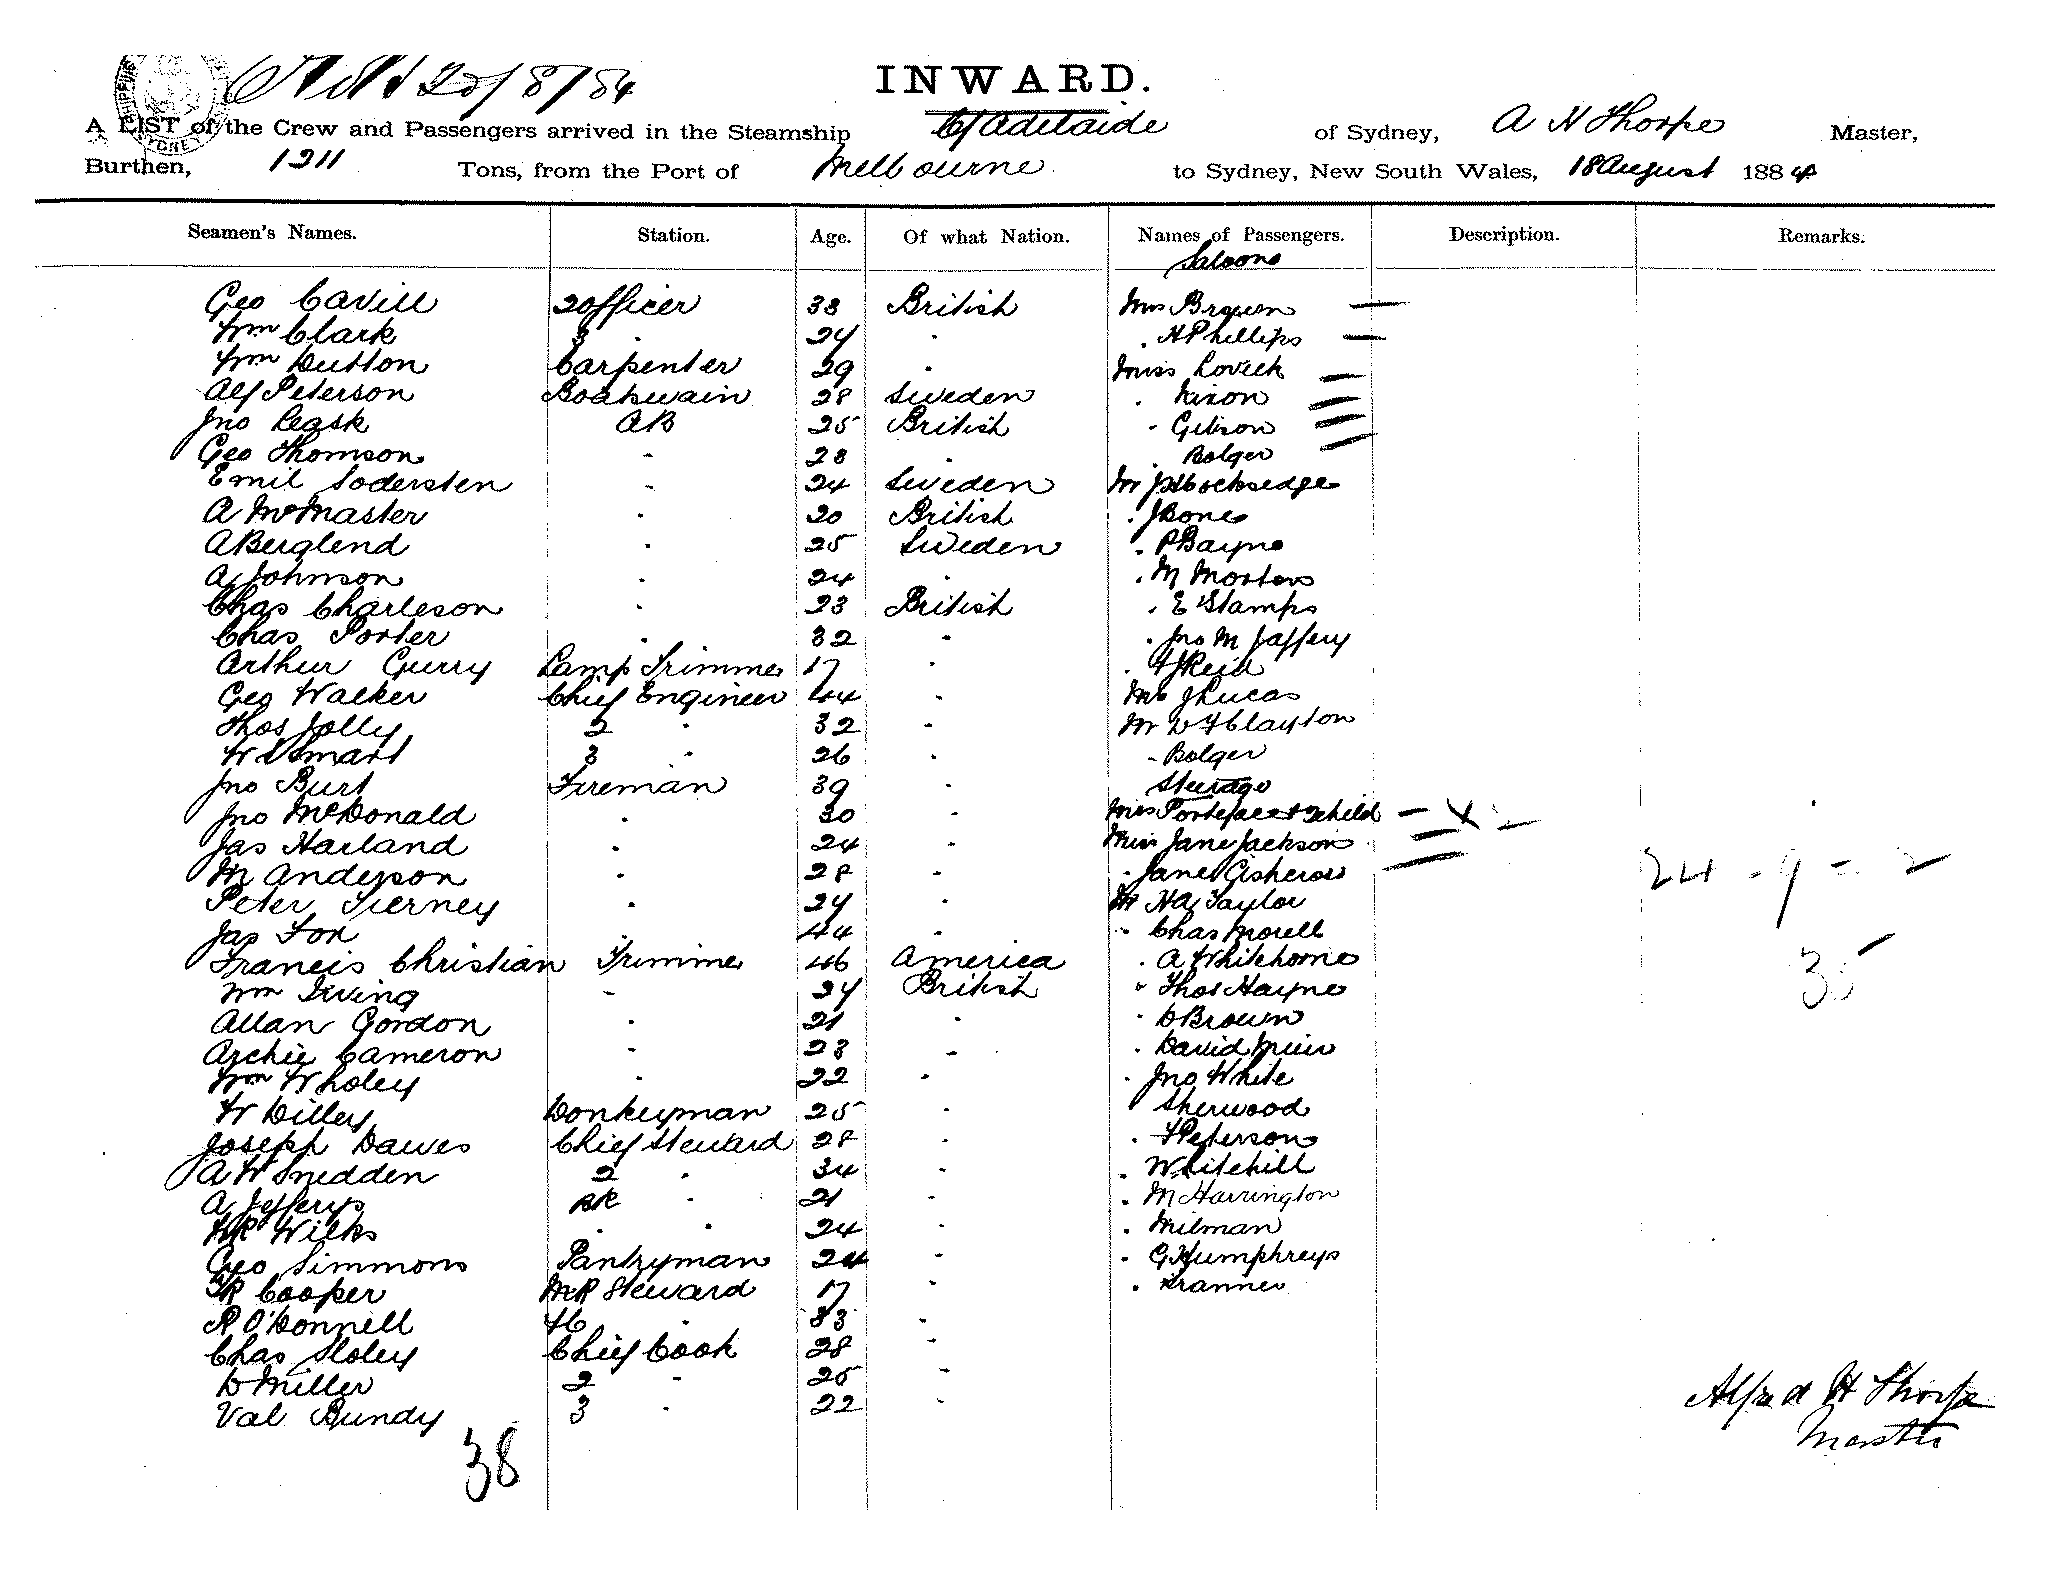 20/8/84
INWARD.
A LIST of the Crew and Passengers arrived in the Steamship C/Adelaide of Sydney, A H Thorpe Master,
Burthen, 1211 Tons, from the Port of Melbourne to Sydney, New South Wales, 18 August 1884
Seamen's Names. Station. Age. Of what Nation. Names of Passengers. Description. Remarks.
Saloons
Geo Cavill 2 Officer 38 British Mrs Brown —
Wm Clark 3 " 24 " " H Phillips —
Wm Dutton Carpenter 29 " Miss Lovick —
Alf Peterson Boatswain 28 Sweden " Nixon —
Jno Leask AB 25 British " Gibson —
Geo Thomson " 28 " " Bolger —
Emil Sodersten " 24 Sweden Mr
A McMaster " 20 British " J Bone
A Berglend " 25 Sweden " P Bayne
A Johnson " 24 " " M
Chas Charleson " 23 British " E Stamps
Chas Porter " 32 " " Jno M Jaffery
Arthur Gurry Lamp Trimmer 17 " " Reid
Geo Walker Chief Engineer 44 " J Lucas
Thos Jolly 2 " 32 " Mr Clayton
W Smart 3 " 26 " " Bolger
Jno Burt Fireman 39 " Steerage
Jno McDonald " 30 " Mrs & 2 child — X 2 —
Jas Harland " 24 " Miss Jane Jackson —
M Anderson " 28 " " Jane —
24 - 9 - 2
Peter Tierney " 24 " Mr Taylor
Jas Fox " 44 " " Chas Morell
Francis Christian Trimmer 46 America " A Whitehorne
35
Wm Irving " 24 British " Thos Hayne
Allan Gordon " 21 " " D Brown
Archie Cameron " 23 " " David Muir
Wm Wholey " 22 " " Jno White
W Dilley Donkeyman 25 " " Sherwood
Joseph Dawes Chief Steward 28 " " Peterson
A W Snedden 2 " 34 " " Whitehill
A Jefferys " 21 " " M Harrington
Wilks " " 24 " " Milman
Geo Simmons Pantryman 24 " " G Humphreys
Cooper MR Steward 17 " "
R O'Donnell " 33 "
Chas Sloley Chief Cook 28 "
D Miller 2 " 25 "
Val Bundy 3 " 22 "
38
Alfred H Thorpe
Master